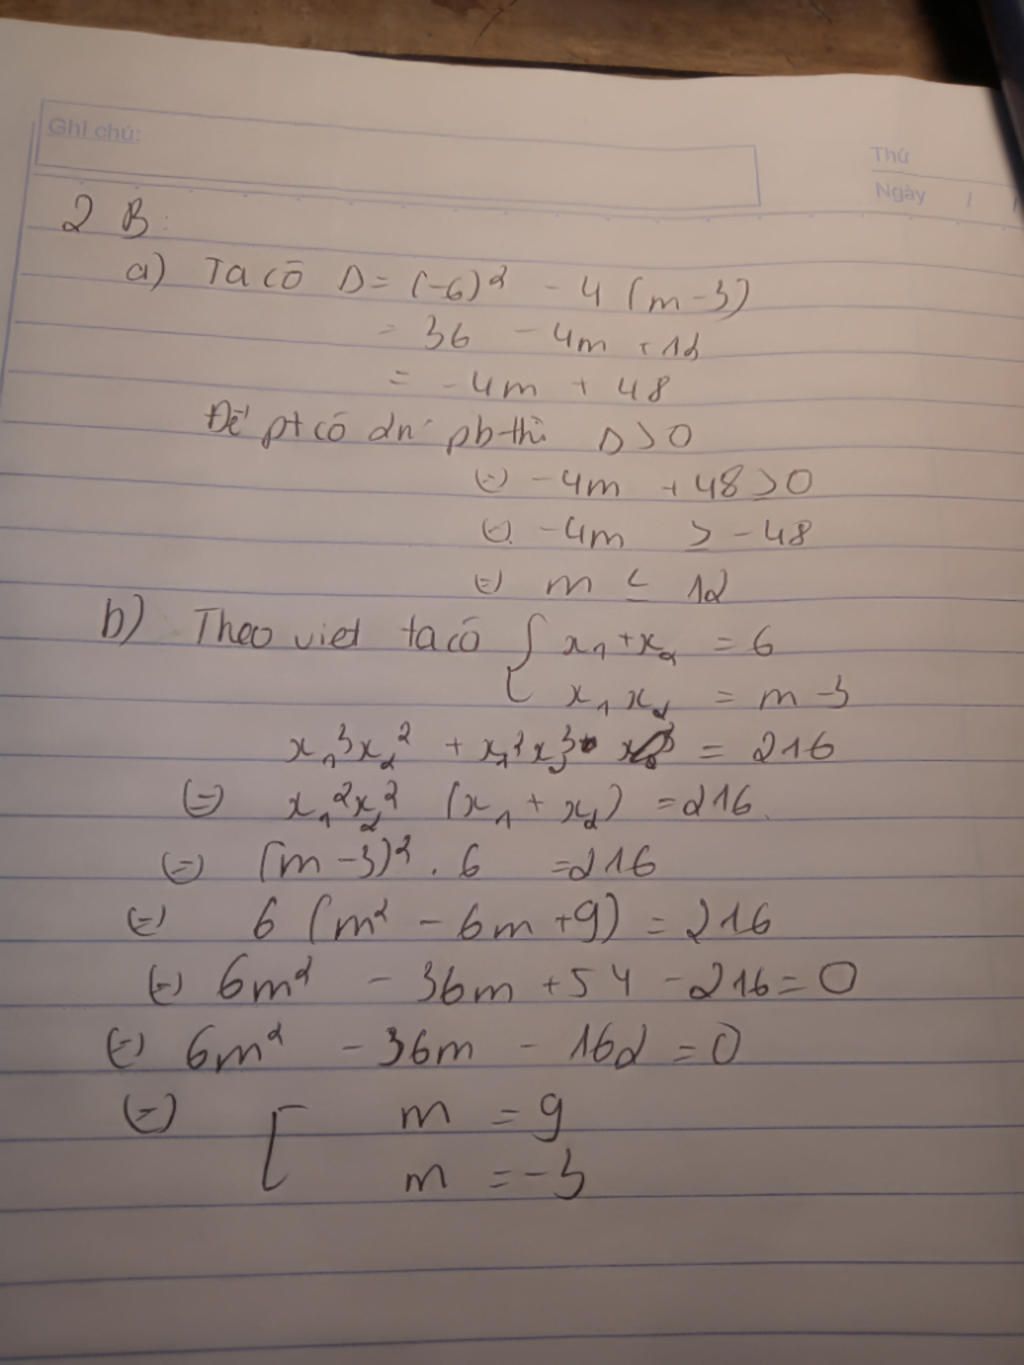 Ghi chú:
Thứ
Ngày / /
2 B:
a) Ta có Δ = (-6)² - 4 (m-3)
= 36 - 4m + 12
= -4m + 48
Để pt có 2n pb thì Δ > 0
(=) -4m + 48 > 0
(=) -4m > -48
(=) m < 12
b) Theo viet ta có { x₁ + x₂ = 6
x₁ x₂ = m - 3
x₁³x₂² + x₁²x₂³ = 216
(=) x₁²x₂² (x₁ + x₂) = 216
(=) (m - 3)² . 6 = 216
(=) 6 (m² - 6m + 9) = 216
(=) 6m² - 36m + 54 - 216 = 0
(=) 6m² - 36m - 162 = 0
(=) [ m = 9
m = -3